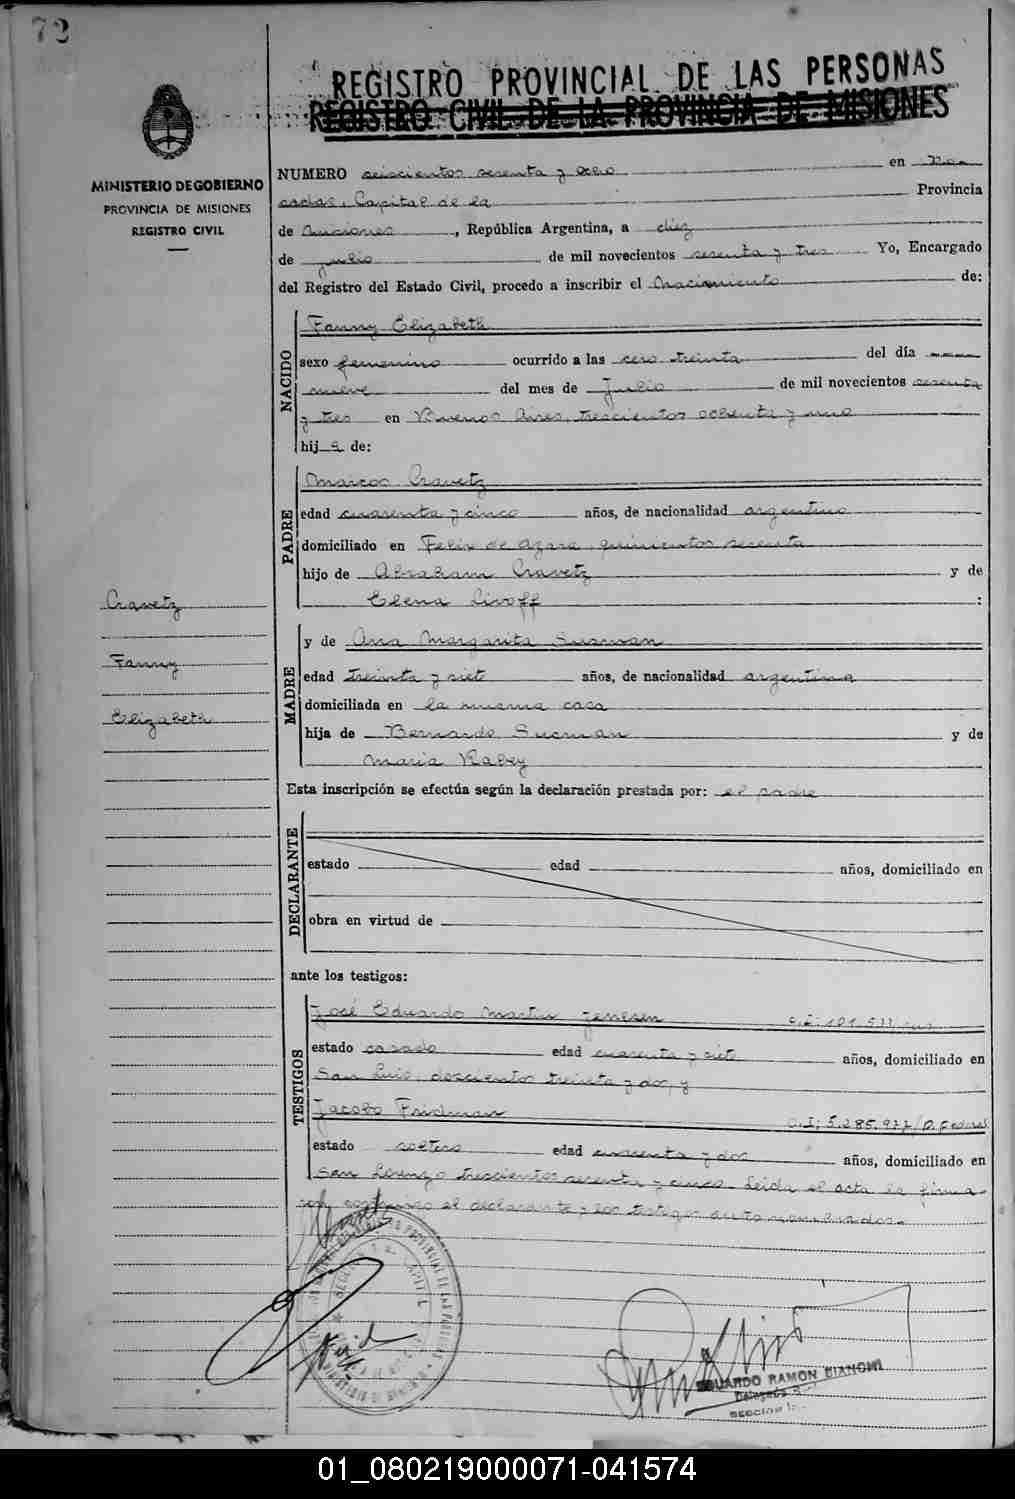 72
REGISTRO PROVINCIAL DE LAS PERSONAS
REGISTRO CIVIL DE LA PROVINCIA DE MISIONES
MINISTERIO DE GOBIERNO
PROVINCIA DE MISIONES
REGISTRO CIVIL
NUMERO seiscientos sesenta y ocho en Po-
sadas, Capital de la Provincia
de Misiones, República Argentina, a diez
de julio de mil novecientos sesenta y tres Yo, Encargado
del Registro del Estado Civil, procedo a inscribir el Nacimiento de:
NACIDO
Fanny Elizabeth
sexo femenino ocurrido a las cero treinta del día
nueve del mes de Julio de mil novecientos sesenta
y tres en Buenos Aires, trescientos ochenta y uno
hija de:
PADRE
Marcos Cravetz
edad cuarenta y cinco años, de nacionalidad argentino
domiciliado en Felix de Azara quinientos sesenta
hijo de Abraham Cravetz y de
Elena Livoff :
Cravetz
Fanny
Elizabeth
MADRE
y de Ana Margarita Susman
edad treinta y siete años, de nacionalidad argentina
domiciliada en la misma casa
hija de Bernardo Susman y de
Maria Rabey
Esta inscripción se efectúa según la declaración prestada por: el padre
DECLARANTE
estado edad años, domiciliado en
obra en virtud de
ante los testigos:
TESTIGOS
José Eduardo Martin Jensen C.I: 101.511
estado casado edad cuarenta y siete años, domiciliado en
San Luis, doscientos treinta y dos, y
Jacobo Fridman C.I: 5.285.977/P. Federal
estado soltero edad cuarenta y dos años, domiciliado en
San Lorenzo trescientos sesenta y cinco. Leida el acta la firma
con conmigo el declarante y los testigos autonombrados.
EDUARDO RAMON BIANCHI
Delegado
SECCION
01_080219000071-041574